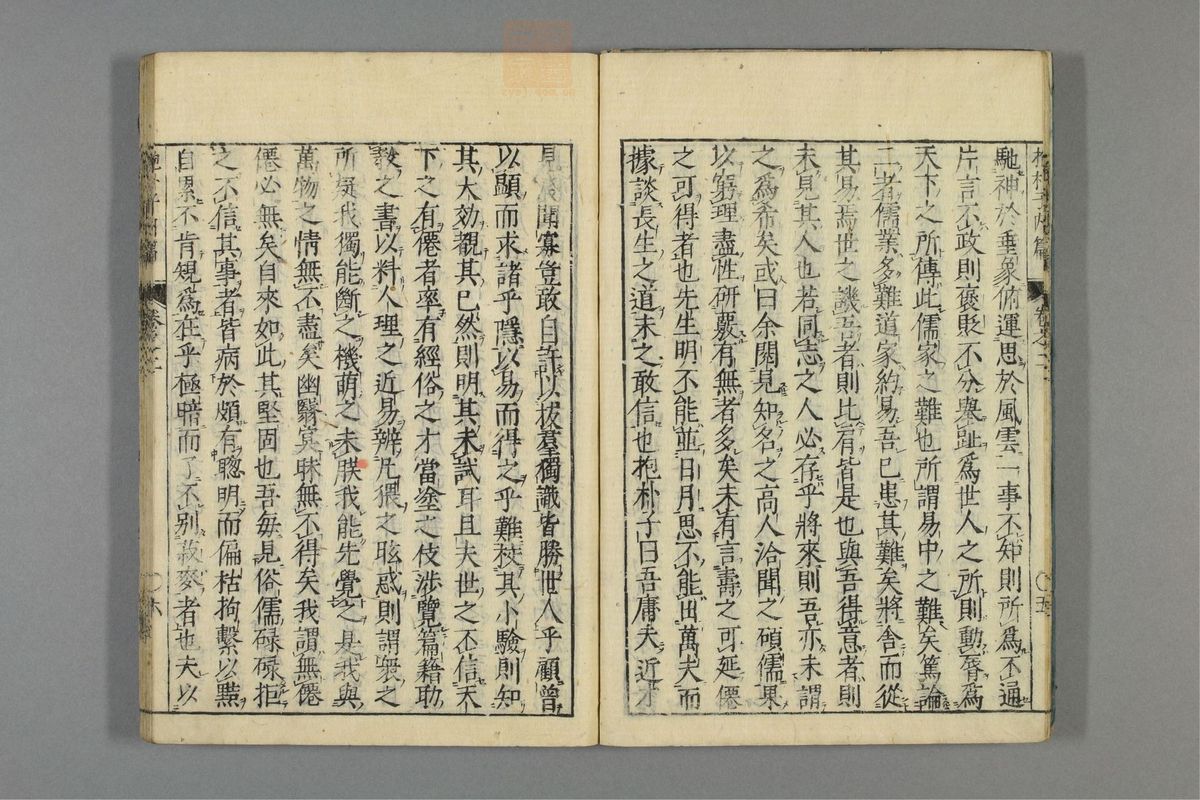 馳神於垂象俯運思於風雲一事不知則所爲不通
片言不政則褒貶不分舉趾爲世人之所則動脣爲
天下之所傳此儒家之難也所謂易中之難矣篤論
二者儒業多難道家約易吾已患其難矣將舍而從
其易焉世之譏吾者則比有皆是也與吾得意者則
未見其人也若同志之人必存乎將來則吾亦未謂
之爲希矣或曰余閱見知名之高人洽聞之碩儒果
以窮理盡性研覈有無者多矣未有言壽之可延僊
之可得者也先生明不能並日月思不能出萬夫而
據談長生之道未之敢信也抱朴子曰吾庸夫近才
見淺聞寡豈敢自許以拔羣獨識皆勝世人乎顧曾
以顯而求諸乎隱以易而得之乎難校其小驗則知
其大効觀其已然則明其未試耳且夫世之不信天
下之有僊者率有經俗之才當塗之伎涉覽篇籍助
教之書以料人理之近易辨凡猥之眩惑則謂衆之
所疑我獨能斷之機萌之未朕我能先覺之是我與
萬物之情無不盡矣幽翳冥昧無不得矣我謂無僊
僊必無矣自來如此其堅固也吾每見俗儒碌碌拒
之不信其事者皆病於頗有聰明而偏枯拘繫以黠
自累不肯規爲在乎極暗而了不別菽麥者也夫以
抱朴子內篇 卷之二 〇五
卷之二 〇六